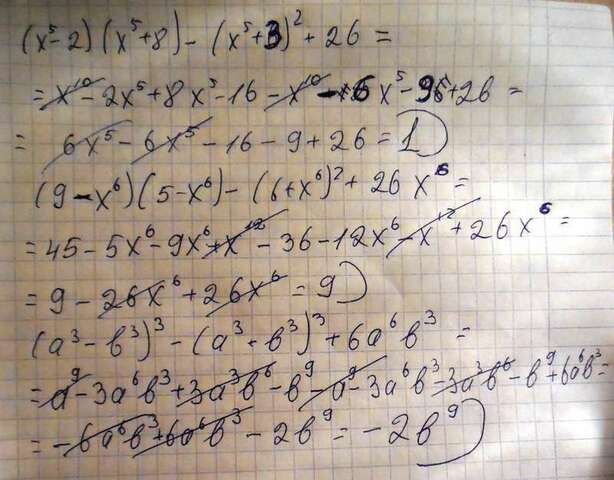 (x⁵-2)(x⁵+8)-(x⁵+3)²+26=
=x¹⁰-2x⁵+8x⁵-16-x¹⁰-6x⁵-9+26=
=6x⁵-6x⁵-16-9+26=1
(9-x⁶)(5-x⁶)-(6+x⁶)²+26x⁶=
=45-5x⁶-9x⁶+x¹²-36-12x⁶-x¹²+26x⁶=
=9-26x⁶+26x⁶=9
(a³-b³)³-(a³+b³)³+6a⁶b³=
=a⁹-3a⁶b³+3a³b⁶-b⁹-a⁹-3a⁶b³-3a³b⁶-b⁹+6a⁶b³=
=-6a⁶b³+6a⁶b³-2b⁹=-2b⁹